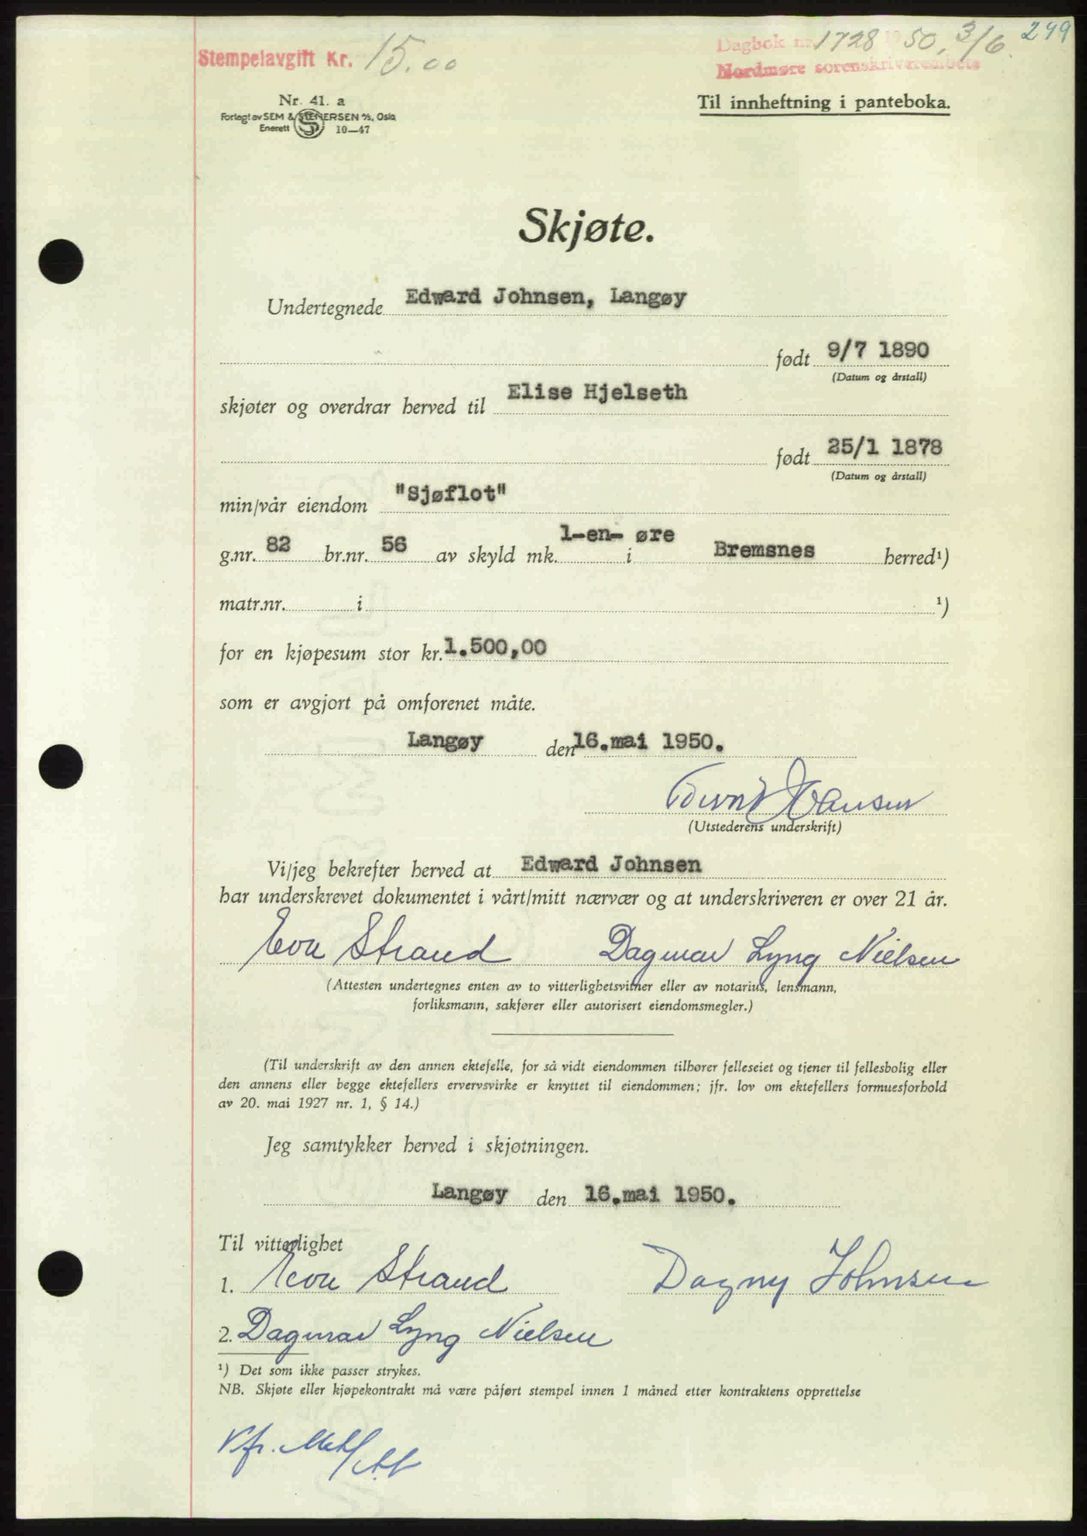 249
Stempelavgift Kr. 15.00
Dagbok nr. 1728 1950, 3/6
Nordmøre sorenskriverembete
Nr. 41. a
Forlagt av SEM & STENERSEN A/S, Oslo
Enerett 10—47
Til innheftning i panteboka.
Skjøte.
Undertegnede Edward Johnsen, Langøy
født 9/7 1890
(Datum og årstall)
skjøter og overdrar herved til Elise Hjelseth
født 25/1 1878
(Datum og årstall)
min/vår eiendom "Sjøflot"
g.nr. 82 br.nr. 56 av skyld mk. 1-en- øre i Bremsnes herred¹)
matr.nr. i ¹)
for en kjøpesum stor kr. 1.500,00
som er avgjort på omforenet måte.
Langøy den 16.mai 1950.
(Utstederens underskrift)
Vi/jeg bekrefter herved at Edward Johnsen
har underskrevet dokumentet i vårt/mitt nærvær og at underskriveren er over 21 år.
Strand Dagmar Lyng Nielsen
(Attesten undertegnes enten av to vitterlighetsvitner eller av notarius, lensmann,
forliksmann, sakfører eller autorisert eiendomsmegler.)
(Til underskrift av den annen ektefelle, for så vidt eiendommen tilhører felleseiet og tjener til fellesbolig eller
den annens eller begge ektefellers ervervsvirke er knyttet til eiendommen; jfr. lov om ektefellers formuesforhold
av 20. mai 1927 nr. 1, § 14.)
Jeg samtykker herved i skjøtningen.
Langøy den 16.mai 1950.
Til vitterlighet
1. Strand Dagny Johnsen
2. Dagmar Lyng Nielsen
¹) Det som ikke passer strykes.
NB. Skjøte eller kjøpekontrakt må være påført stempel innen 1 måned etter kontraktens opprettelse